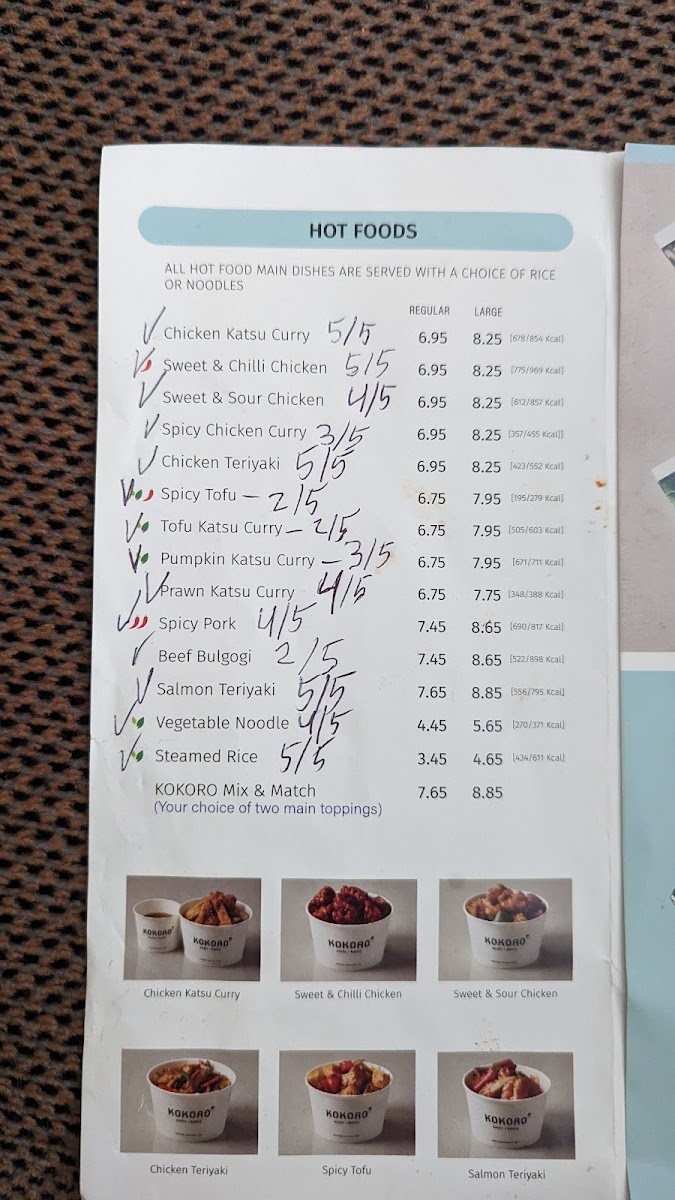 HOT FOODS
ALL HOT FOOD MAIN DISHES ARE SERVED WITH A CHOICE OF RICE
OR NOODLES
REGULAR LARGE
Chicken Katsu Curry 5/5 6.95 8.25 [678/854 Kcal]
Sweet & Chilli Chicken 5/5 6.95 8.25 [775/969 Kcal]
Sweet & Sour Chicken 4/5 6.95 8.25 [612/857 Kcal]
Spicy Chicken Curry 3/5 6.95 8.25 [357/455 Kcal]]
Chicken Teriyaki 5/5 6.95 8.25 [423/552 Kcal]
Spicy Tofu – 2/5 6.75 7.95 [195/279 Kcal]
Tofu Katsu Curry – 2/5 6.75 7.95 [505/603 Kcal]
Pumpkin Katsu Curry – 3/5 6.75 7.95 [671/711 Kcal]
Prawn Katsu Curry 4/5 6.75 7.75 [348/388 Kcal]
Spicy Pork 4/5 7.45 8.65 [690/817 Kcal]
Beef Bulgogi 2/5 7.45 8.65 [522/898 Kcal]
Salmon Teriyaki 5/5 7.65 8.85 [556/795 Kcal]
Vegetable Noodle 4/5 4.45 5.65 [270/371 Kcal]
Steamed Rice 5/5 3.45 4.65 [434/611 Kcal]
KOKORO Mix & Match 7.65 8.85
(Your choice of two main toppings)
KOKORO KOKORO KOKORO KOKORO
Chicken Katsu Curry Sweet & Chilli Chicken Sweet & Sour Chicken
KOKORO KOKORO KOKORO
Chicken Teriyaki Spicy Tofu Salmon Teriyaki